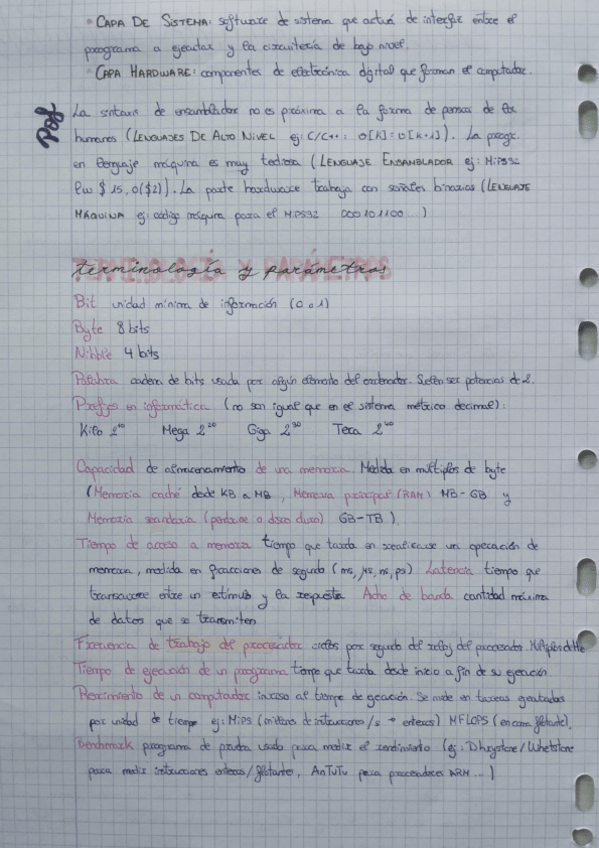 · CAPA DE SISTEMA: software de sistema que actúa de interfaz entre el
programa a ejecutar y la circuitería de bajo nivel.
· CAPA HARDWARE: componentes de electrónica digital que forman el computador.
La sintaxis de ensamblador no es próxima a la forma de pensar de los
humanos (LENGUAJES DE ALTO NIVEL ej: C/C++: v[k]=v[k+1]). La progr.
en lenguaje máquina es muy tediosa (LENGUAJE ENSAMBLADOR ej: MIPS32
lw $15, 0($2)). La parte hardware trabaja con señales binarias (LENGUAJE
MÁQUINA ej: código máquina para el MIPS32 000101100...)
TERMINOLOGÍA Y PARÁMETROS
terminología y parámetros
Bit unidad mínima de información (0 o 1)
Byte 8 bits
Nibble 4 bits
Palabra cadena de bits usada por algún elemento del ordenador. Suelen ser potencias de 2.
Prefijos en informática (no son igual que en el sistema métrico decimal):
Kilo 2¹⁰ Mega 2²⁰ Giga 2³⁰ Tera 2⁴⁰
Capacidad de almacenamiento de una memoria. Medida en múltiplos de byte
(Memoria caché desde KB a MB, Memoria principal (RAM) MB-GB y
Memoria secundaria (pendrive o disco duro) GB-TB).
Tiempo de acceso a memoria tiempo que tarda en realizarse un operación de
memoria, medida en fracciones de segundo (ms, μs, ns, ps) Latencia tiempo que
transcurre entre un estímulo y la respuesta. Ancho de banda cantidad máxima
de datos que se transmiten
Frecuencia de trabajo del procesador ciclos por segundo del reloj del procesador. Múltiplos de Hz
Tiempo de ejecución de un programa tiempo que tarda desde inicio a fin de su ejecución.
Rendimiento de un computador inverso al tiempo de ejecución. Se mide en tareas ejecutadas
por unidad de tiempo ej: MIPS (millones de instrucciones/s → enteros) MFLOPS (en coma flotante).
Benchmark programa de prueba usado para medir el rendimiento (ej: Dhrystone/Whetstone
para medir instrucciones enteras/flotantes, AnTuTu para procesadores ARM...)